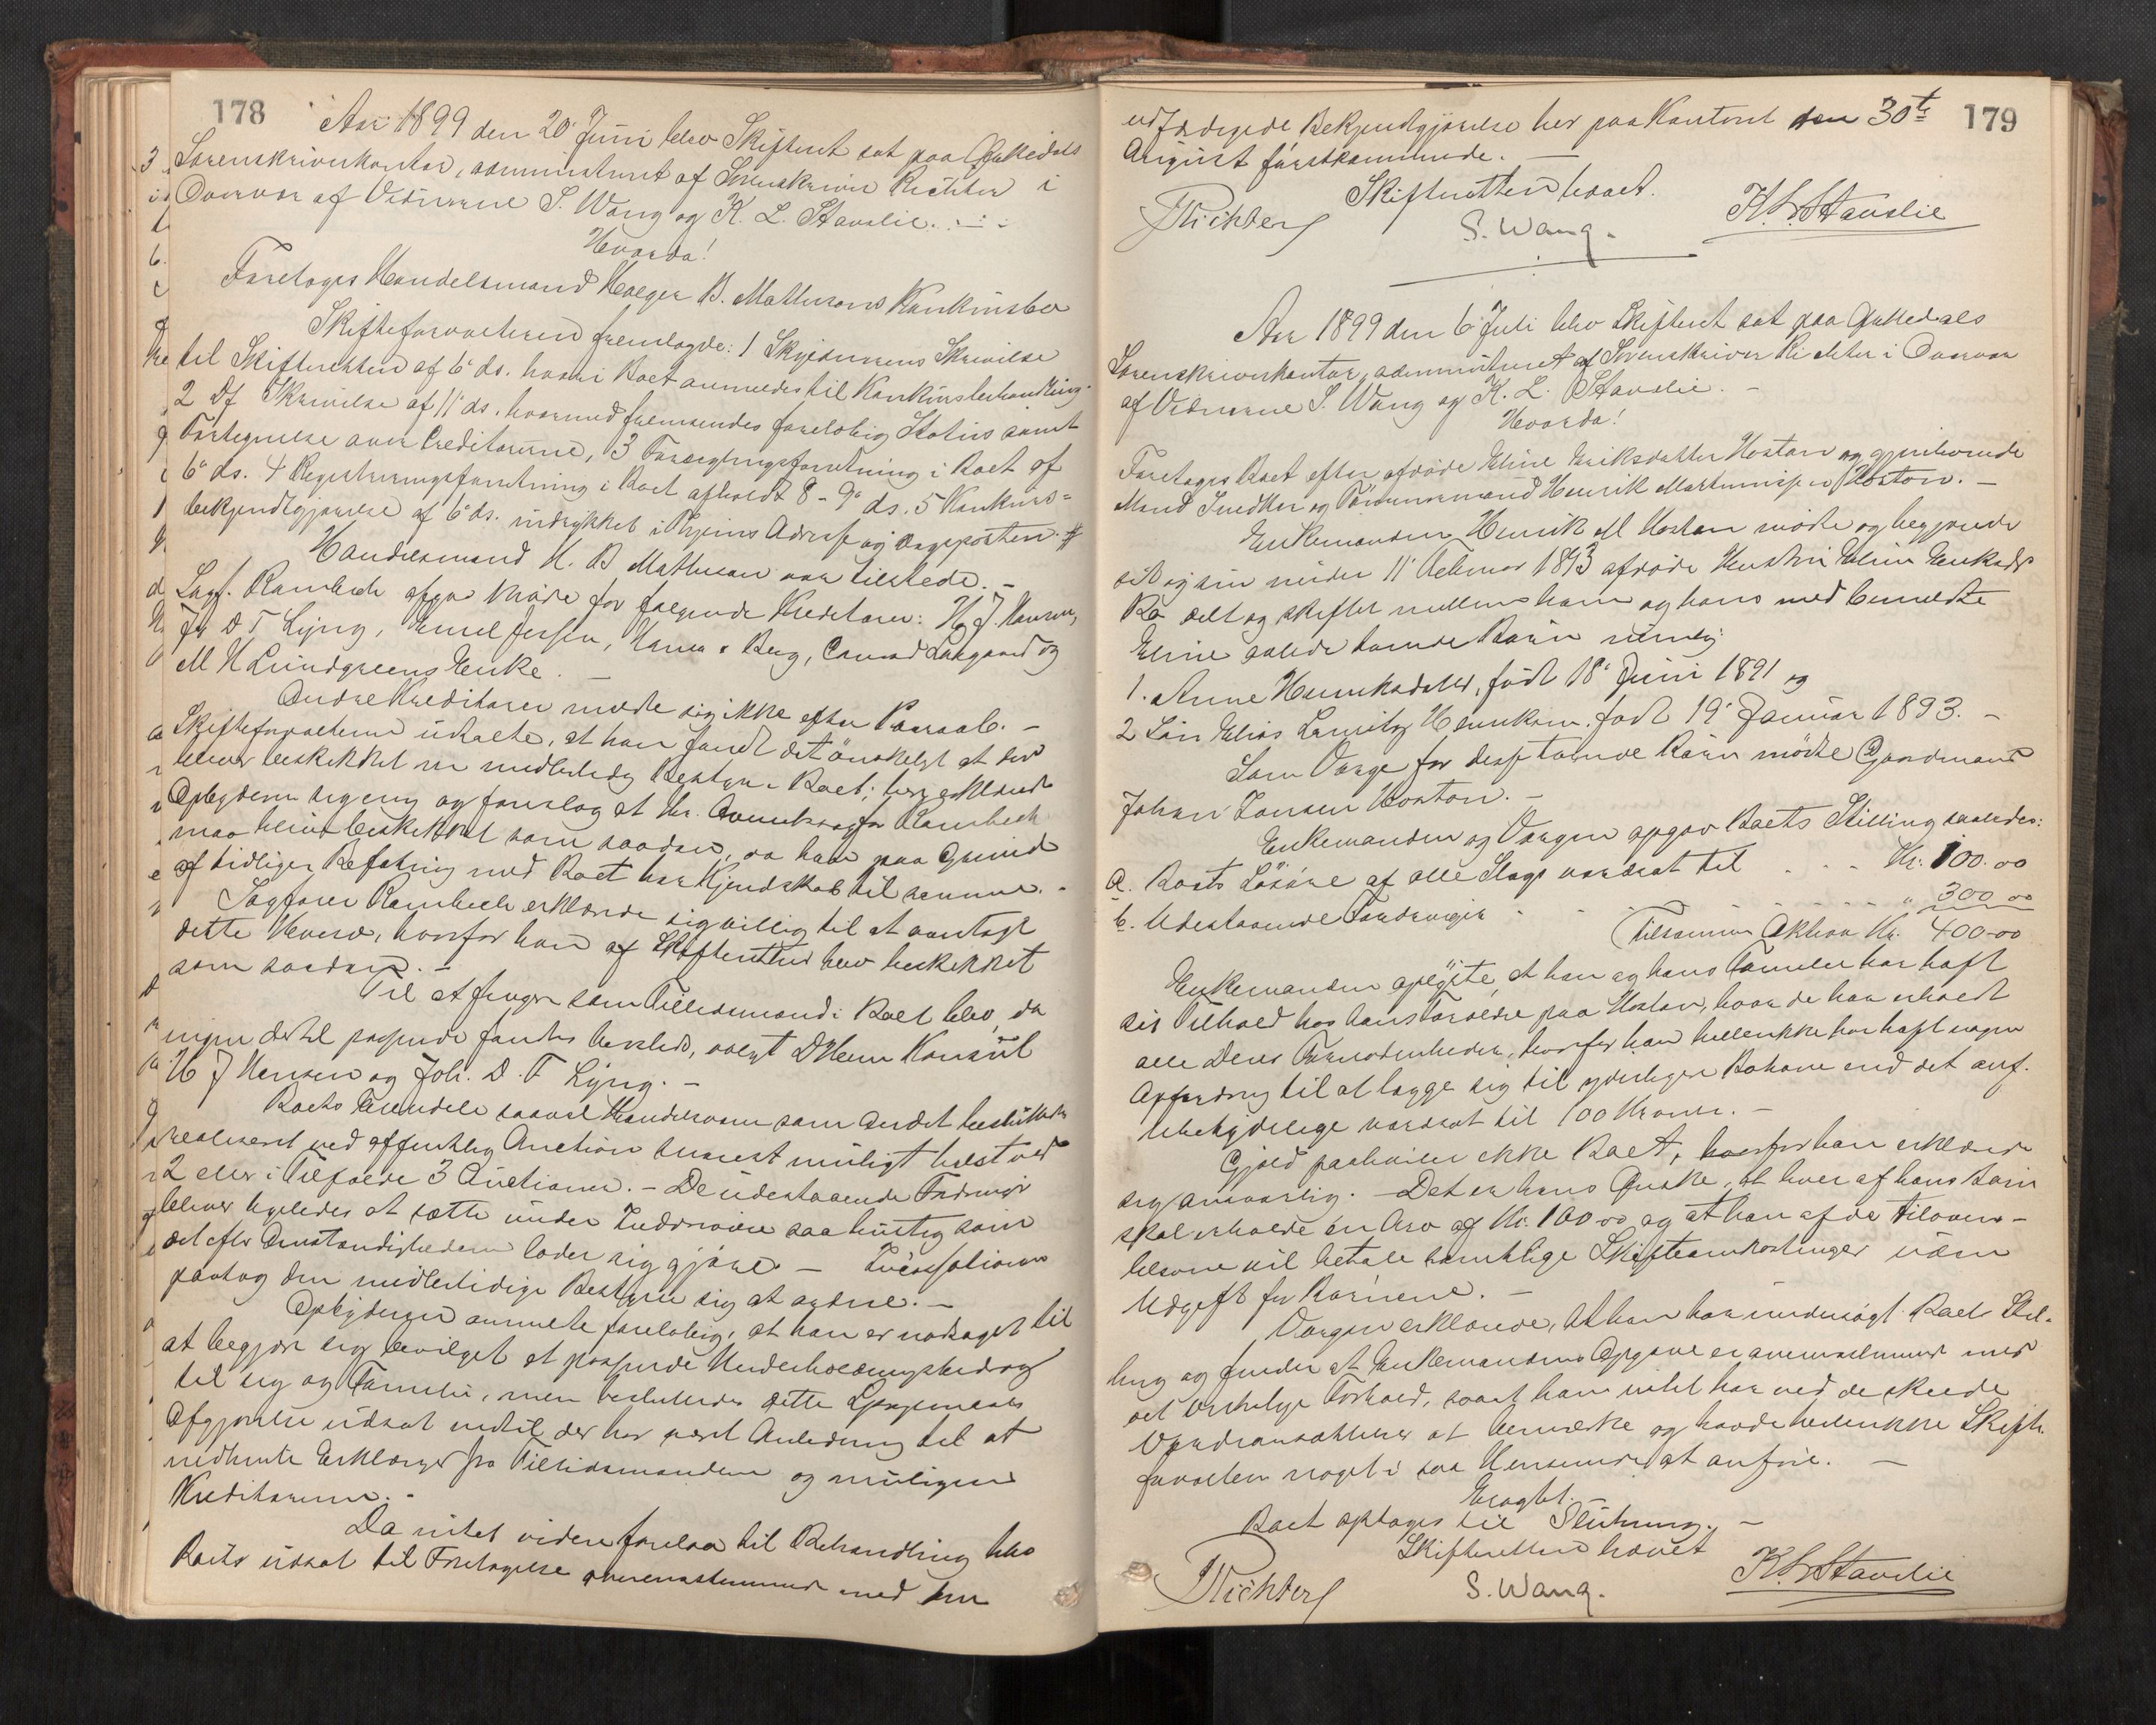 178
Aar 1899 den 20' Juni blev Skifteret sat paa Orkedals
Sorenskriverkontor, administreret af Sorenskriver Richter i
Overvær af Vidnerne S. Wang og K. L. Stavslie.
Hvorda!
Foretoges Handelsmand Holger B. Mathesons Konkursbo
Skifteforvalteren fremlagde: 1 Skyldnerens Skrivelse
til Skifteretten af 6' ds. hvori Boet anmeldes til Konkursbehandling.
2 Ds Skrivelse af 11' ds. hvormed fremsendes foreløbig Status samt
Fortegnelse over Creditorerne, 3 Forseglingsforretning i Boet af
6' ds. 4 Registreringsforretning i Boet afholdt 8 - 9' ds. 5 Konkurs=
bekjendtgjørelse af 6' ds. indrykket i Thjems Adresse og Dagsposten. #
Handelsmand H. B Matheson var tilstede. -
Sagf. Rambech afgav Møde for følgende Kreditorer: H. J. Hansen,
Joh D T Lyng, Emil Jensen, & Berg, Conrad Langaard og
M H Lundgreens Enke. -
Andre Kreditorer meldte sig ikke efter Paaraab. -
Skifteforvalteren udtalte, at han fandt det ønskeligt at der
blever beskikket en midlertidig Bestyrer i Boet; heri erklærede
Opbyderen sig enig og foreslog at Hr. Rambech
maa blive beskikket som saadan, da han paa Grund
af tidligere Befatning med Boet har Kjendskab til samme. -
Sagfører Rambech erklærede sig villig til at modtage
dette Hverv, hvorfor han af Skifteretten blev beskikket
som saadan. -
Til at fungere som Tillidsmænd i Boet blev, da
ingen dertil passende fandtes herstede, valgt DHerr Konsul
H J Hansen og Joh. D. T Lyng. -
Boets Eiendele saavel Handelsvarer som andet besluttedes
realiseret ved offentlig Auction snarest muligt helst ved
2 eller i Tilfælde 3 Auctioner. - De udestaaende Fordringer
bliver ligeledes at sætte under Inddrivelse saa hurtig som
det efter Omstændighederne lader sig gjøre - Incassationen
paatog den midlertidige Bestyrer sig at ordne. -
Opbyderen anmeldte foreløbig, at han er nødsaget til
at begjære sig bevilget et passende Underholdningsbidrag
til sig og Familie, men besluttedes dette Spørgsmaals
Afgjørelse udsat indtil der har været Anledning til at
indhente Erklæring fra Tillidsmændene og muligens
Kreditorerne. -
Da intet videre forelaa til Behandling blev
Boets udsat til Foretagelse overensstemmende med den
179
udfærdigede Bekjendtgjørelse her paa Kontoret den 30te
August førstkommende. -
Skifteretten hævet.
Richter
S. Wang.
K. L. Stavslie
Aar 1899 den 6' Juli blev Skifteret sat paa Orkedals
Sorenskriverkontor, administreret af Sorenskriver Richter i Overvær
af Vidnerne S. Wang og K. L. Stavslie. -
Hvorda!
Foretoges Boet efter afdøde Eline Eriksdatter Hoston og gjenlevende
Mand Snedker og Henrik Martinussen Hoston. -
Enkemanden Henrik M Hoston mødte og begjærede
sit og sin under 11' Februar 1893 afdøde Hustru Eline Eriksdr
Bo delt og skiftet mellem ham og hans med bemeldte
Eline avlede tvende Børn nemlig:
1. Anne Henriksdatter, født 18' Juni 1891 og
2 Søn Elias Henriksen. født 19' Januar 1893. -
Som Værge for disse tvende Børn mødte Gaardmand
Johan Hoston. -
Enkemanden og Værgen opgav Boets Stilling saaledes:
a. Boets Løsøre af alle Slags værdsat til . . - Kr. 100.00
b. Udestaaende Fordringer - - - - - - - " 300.00
Tilsammen Aktiva Kr. 400.00
Enkemanden oplyste, at han og hans Familie har haft
sit Tilhold hos hans Forældre paa Hoston, hvor de har erholdt
alle Deres Fornødenheder, hvorfor han hellerikke har haft nogen
Opfordring til at lægge sig til yderligere Bohave end det anf.
Ubetydelige værdsat til 100 Kroner. -
Gjæld paahviler ikke Boet, hvorfor han erklærede
sig ansvarlig. - Det er hans Ønske, at hver af hans Børn
skal erholde en Arv af Kr. 100.00 og at han af de tilovers-
blevne vil betale samtlige Skifteomkostninger uden
Udgift for Børnene. -
Værgen erklærede, at han har undersøgt Boets Stil-
ling og finder at Enkemandens Opgave er overensstemmende med
det virkelige Forhold, saaat han intet har ved de skeede
Værdiansættelser at bemærke og havde hellerikke Skifte-
forvalteren noget i saa Henseende at anføre. -
Eragtet. -
Boet optages til Slutning. -
Skifteretten hævet
Richter
S. Wang.
K. L. Stavslie